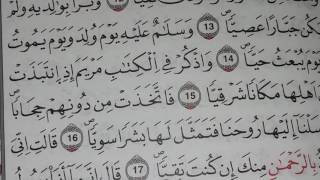 وَبَرًّا بِوَالِدَيْهِ وَلَمْ
يَكُن جَبَّارًا عَصِيًّا ١٤ وَسَلَامٌ عَلَيْهِ يَوْمَ وُلِدَ وَيَوْمَ يَمُوتُ
يُبْعَثُ حَيًّا ١٥ وَاذْكُرْ فِي الْكِتَابِ مَرْيَمَ إِذِ انتَبَذَتْ
أَهْلِهَا مَكَانًا شَرْقِيًّا ١٥ فَاتَّخَذَتْ مِن دُونِهِمْ حِجَابًا
سَلْنَا إِلَيْهَا رُوحَنَا فَتَمَثَّلَ لَهَا بَشَرًا سَوِيًّا ١٦ قَالَتْ إِنِّي
بِالرَّحْمَٰنِ مِنكَ إِن كُنتَ تَقِيًّا ١٧ قَالَ